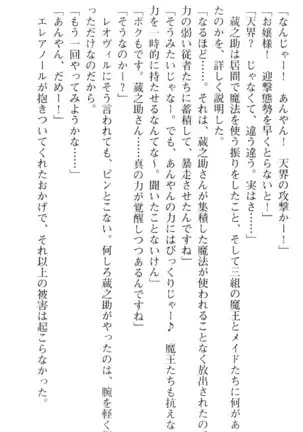 「なんじゃー！　あんやん！　天界の攻撃かー！」
「お嬢様！　迎撃態勢を早くとらないと！」
「天界？　じゃなくて、違う違う。実はさ……」
　蔵之助は居間で魔法を使う振りをしたこと、そして三組の魔王とメイドたちに何があっ
たのかを、詳しく説明した。
「なるほど……。それは、蔵之助さんが集積した魔法が使われることなく放出されたので、
力の弱い従者たちに蓄積して、暴走させたんですね」
「そうみたいじゃなー。でも、あんやんの力にはびっくりじゃー♪　魔王たちも抗えない
力を一時的に持たせるなんてなー。聞いたことないけん」
「ボクもです。蔵之助さん……真の力が覚醒しつつあるんですね」
「そうなのかー？」
　レオヴィルにそう言われても、ピンとこない。何しろ蔵之助がやったのは、腕を軽く振
っただけなのだから。
「もう一回やってみようかな……」
「あんやん、だめー！」
　エレアノールが抱きついてくれたおかげで、それ以上の被害は起こらなかった。